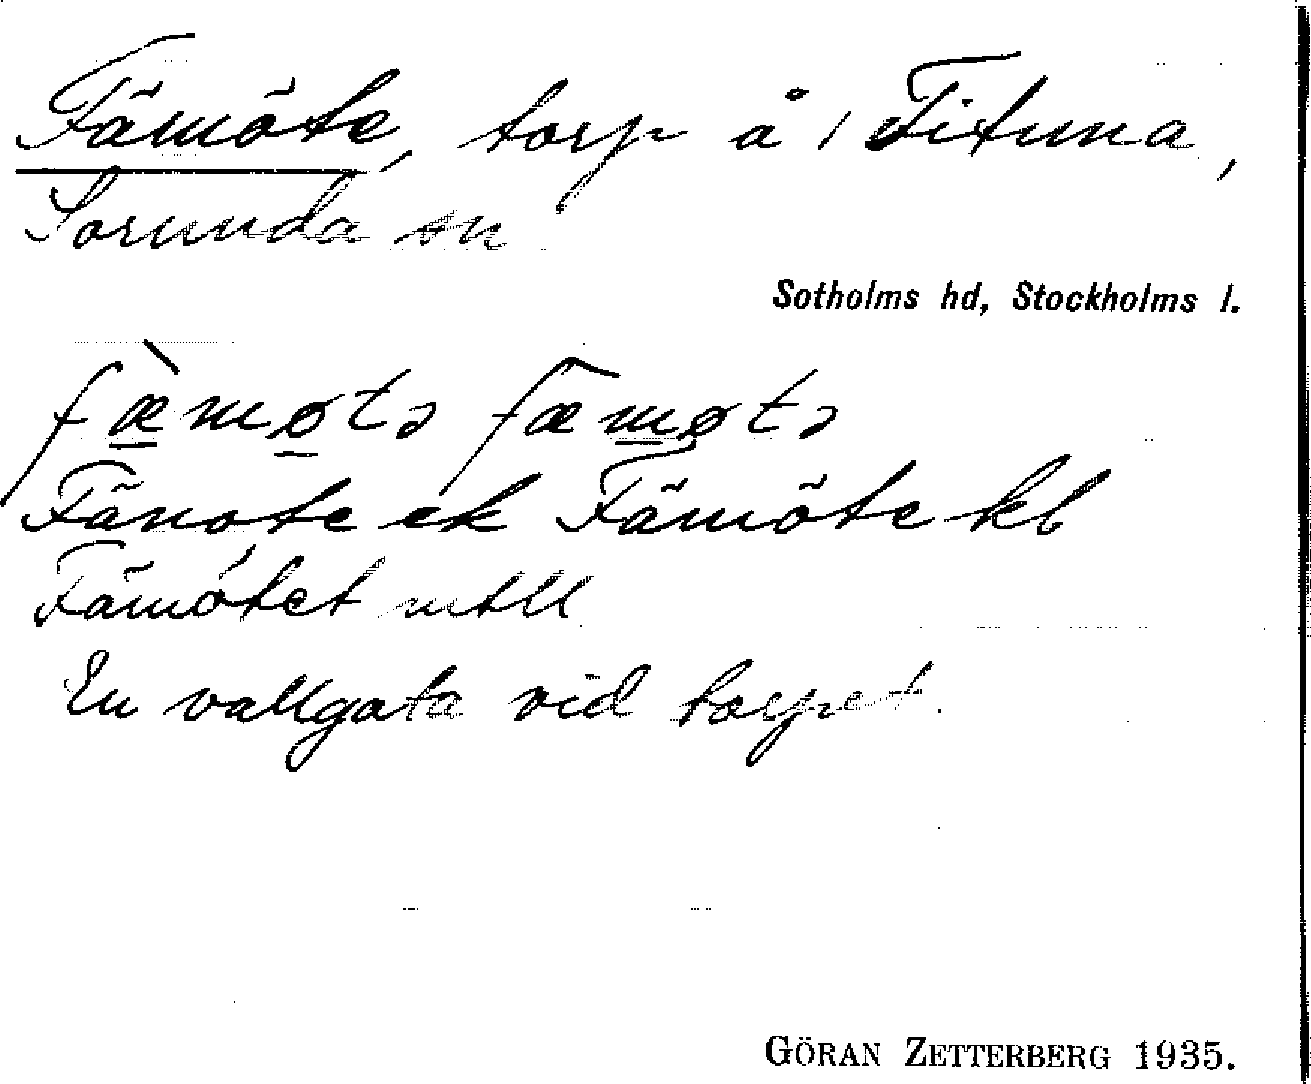 Fämöte, torp å 1 Fituna,
Sorunda sn
Sotholms hd, Stockholms l.
fæ̀møtə fæmøtə
Fänote ek Fämöte kb
Fämötet mtll
En vallgata vid torpet.
GÖRAN ZETTERBERG 1935.